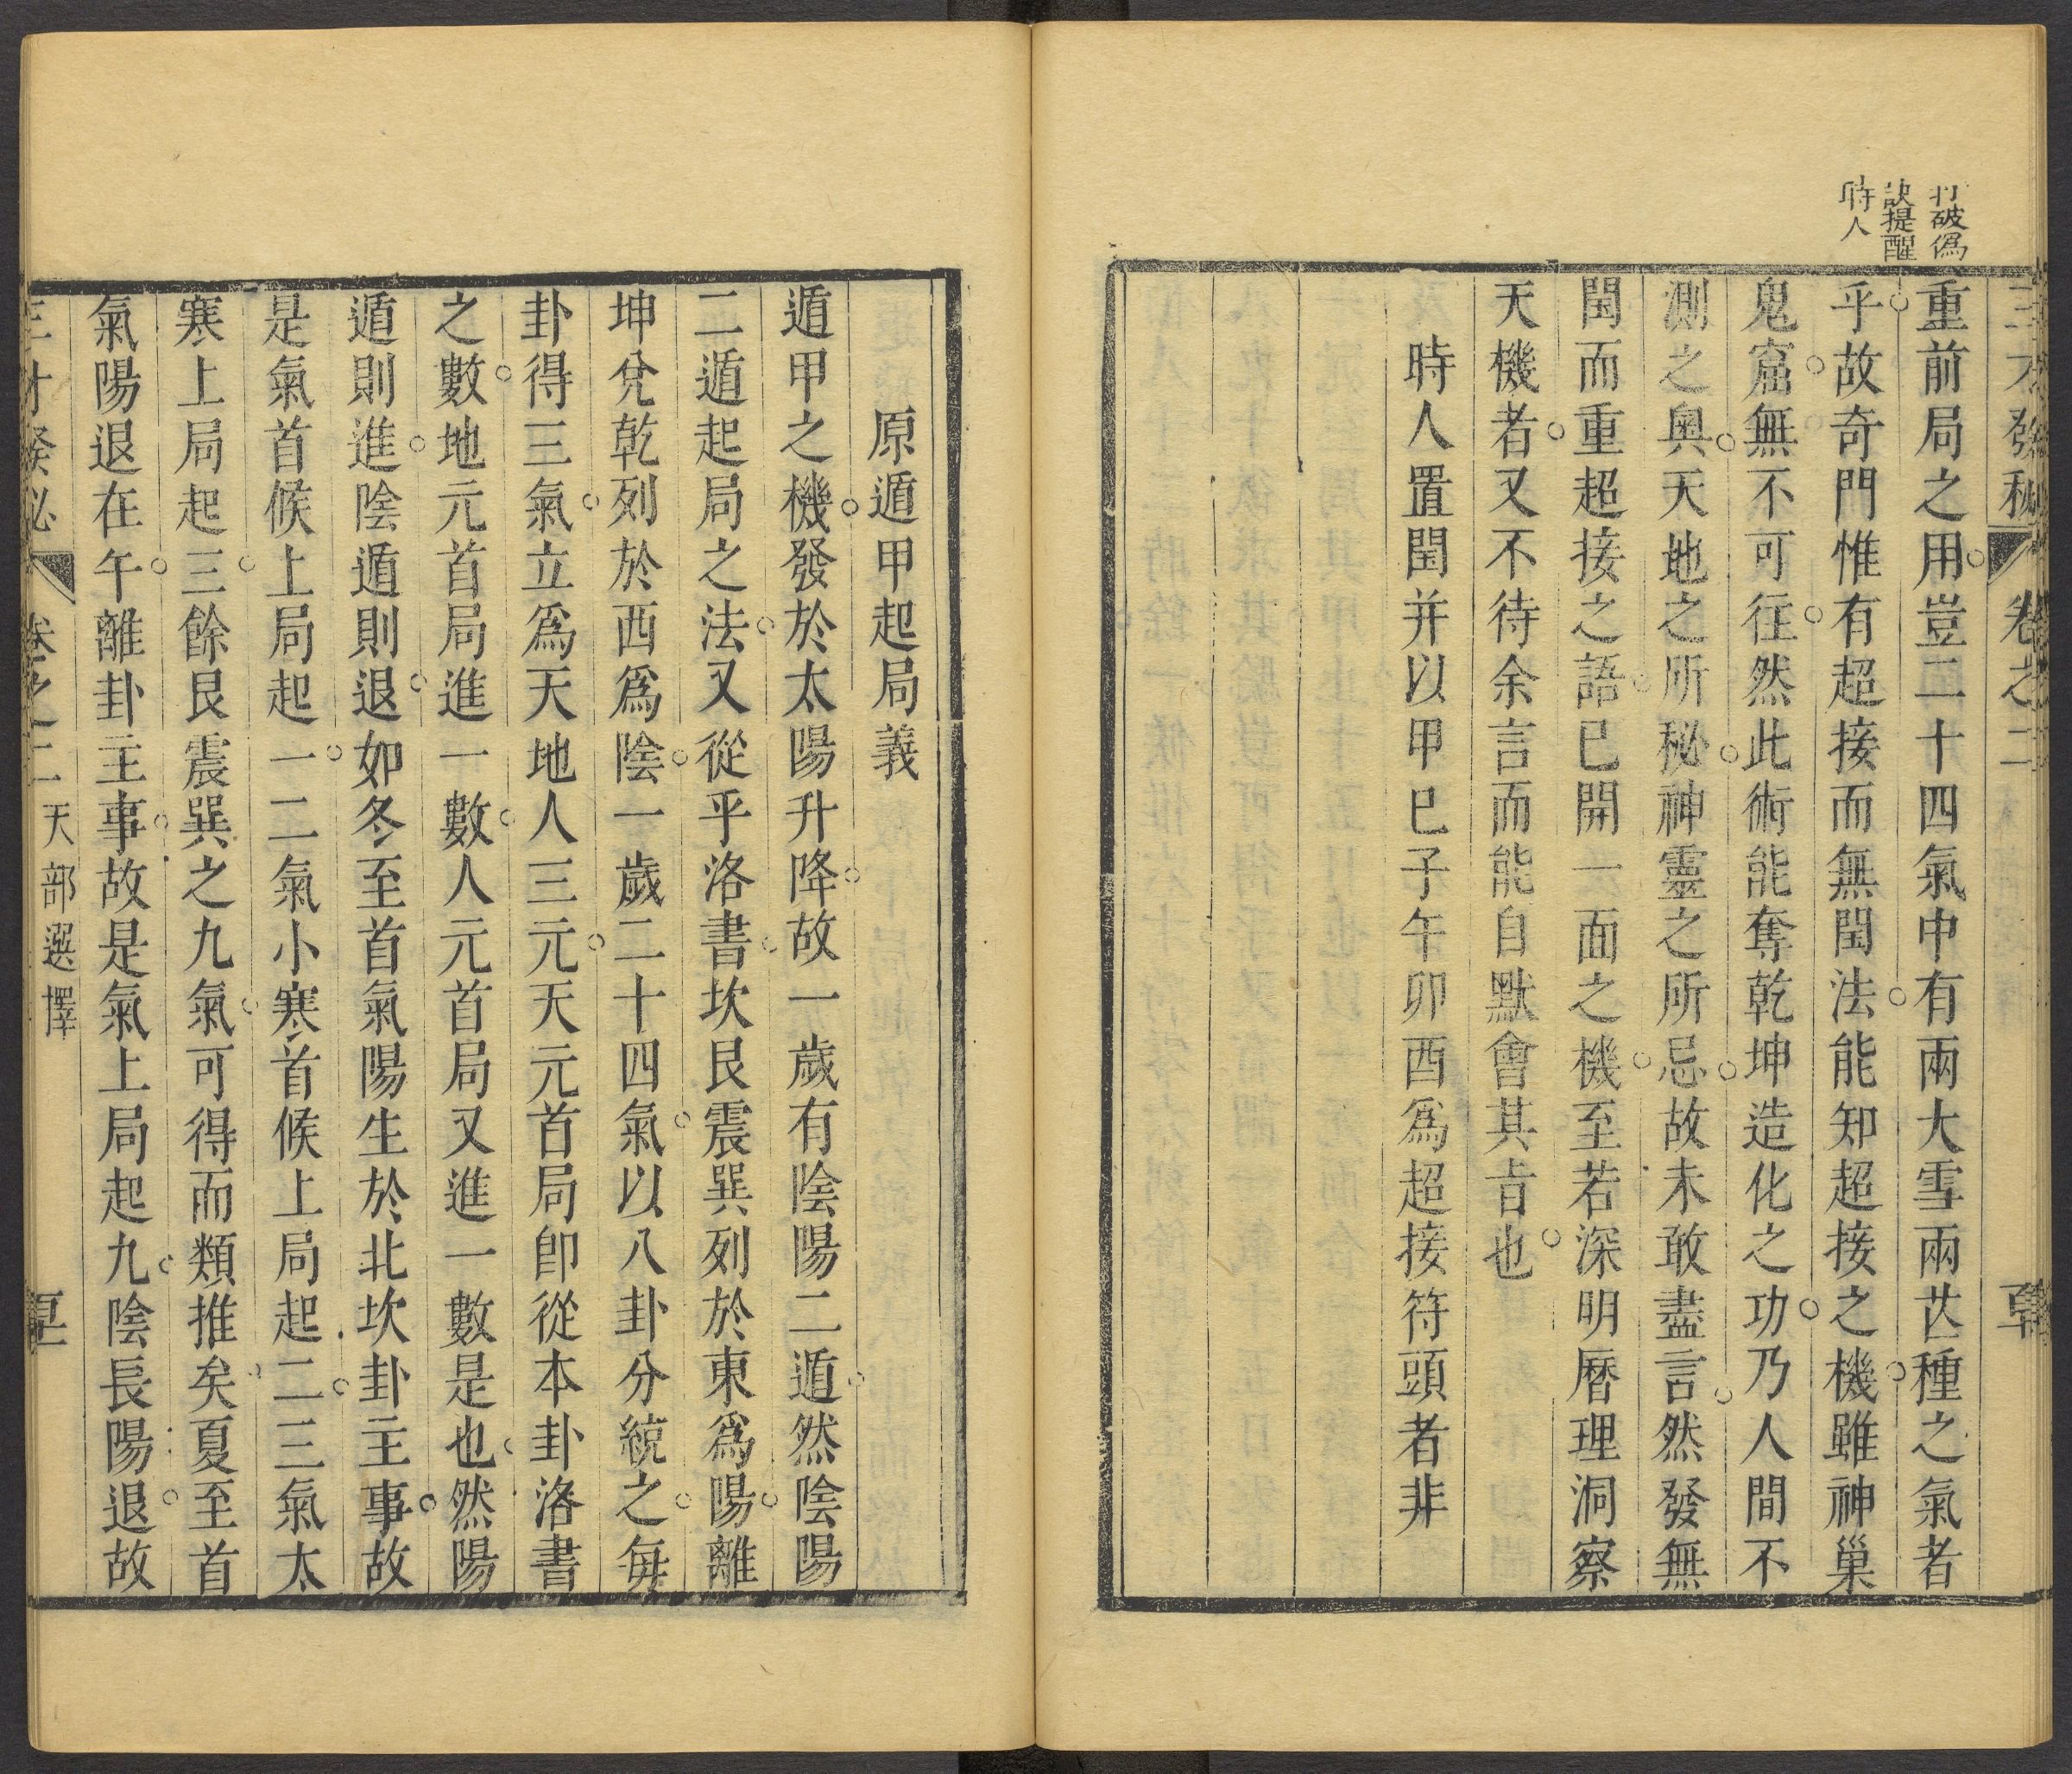 三才發秘 卷之二
打破僞
訣提醒
時人
重前局之用豈二十四氣中有兩大雪兩芒種之氣者
乎故奇門惟有超接而無閏法能知超接之機雖神巢
鬼窟無不可往然此術能奪乾坤造化之功乃人間不
測之奧天地之所秘神靈之所忌故未敢盡言然發無
閏而重超接之語已開一面之機至若深明曆理洞察
天機者又不待余言而能自默會其旨也
時人置閏并以甲巳子午卯酉爲超接符頭者非
原遁甲起局義
遁甲之機發於太陽升降故一歲有陰陽二遁然陰陽
二遁起局之法又從乎洛書坎艮震巽列於東爲陽離
坤兌乾列於西爲陰一歲二十四氣以八卦分統之每
卦得三氣立爲天地人三元天元首局卽從本卦洛書
之數地元首局進一數人元首局又進一數是也然陽
遁則進陰遁則退如冬至首氣陽生於北坎卦主事故
是氣首候上局起一二氣小寒首候上局起二三氣太
寒上局起三餘艮震巽之九氣可得而類推矣夏至首
氣陽退在午離卦主事故是氣上局起九陰長陽退故
三才發秘 卷之二 天部選擇